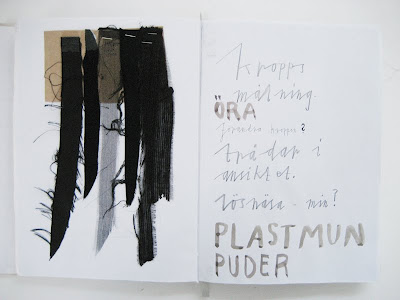 kropps
målning.
ÖRA
förändra kroppen?
trådar i
ansiktet.
löshåra - min?
PLASTMUN
PUDER